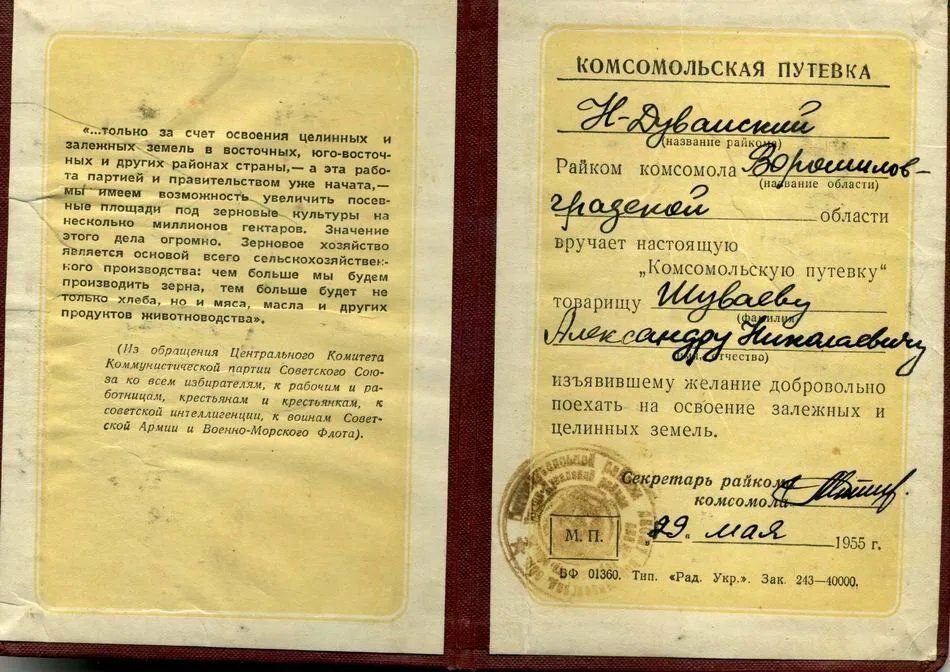 «...только за счет освоения целинных и
залежных земель в восточных, юго-восточ-
ных и других районах страны,— а эта рабо-
та партией и правительством уже начата,—
мы имеем возможность увеличить посев-
ные площади под зерновые культуры на
несколько миллионов гектаров. Значение
этого дела огромно. Зерновое хозяйство
является основой всего сельскохозяйствен-
ного производства: чем больше мы будем
производить зерна, тем больше будет не
только хлеба, но и мяса, масла и других
продуктов животноводства».
(Из обращения Центрального Комитета
Коммунистической партии Советского Сою-
за ко всем избирателям, к рабочим и ра-
ботницам, крестьянам и крестьянкам, к
советской интеллигенции, к воинам Совет-
ской Армии и Военно-Морского Флота).
КОМСОМОЛЬСКАЯ ПУТЕВКА
Н-Дуванский
(название райкома)
Райком комсомола Ворошилов-
(название области)
градской области
вручает настоящую
„Комсомольскую путевку“
товарищу Шуваеву
(фамилия)
Александру Николаевичу
(имя, отчество)
изъявившему желание добровольно
поехать на освоение залежных и
целинных земель.
Секретарь райкома
комсомола
М. П.
„29„ мая 1955 г.
БФ 01360. Тип. «Рад. Укр.». Зак. 243—40000.